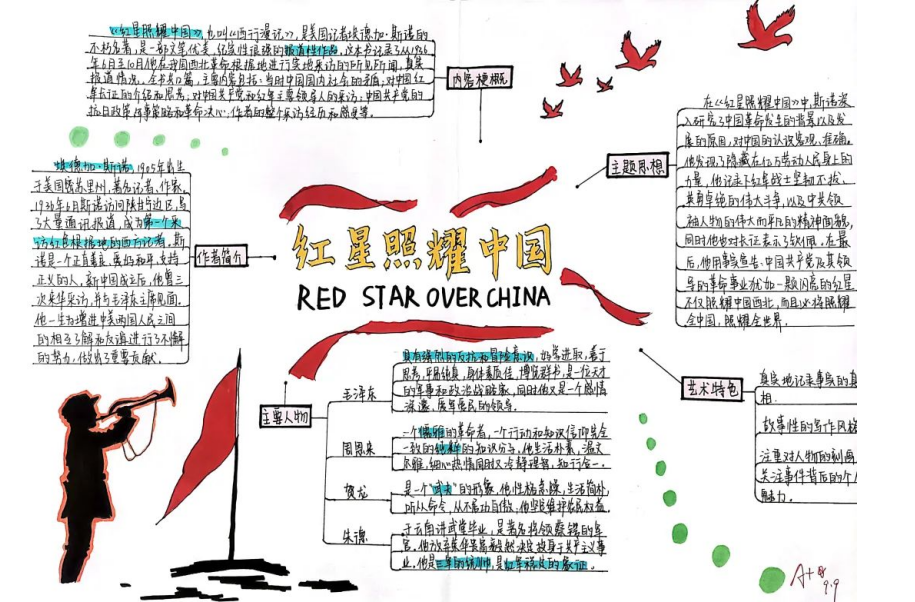 《红星照耀中国》,也叫《西行漫记》,是美国记者埃德加·斯诺的
不朽名著,是一部文笔优美、纪实性很强的报道性作品。这本书记录了从1936
年6月至10月他在我国西北革命根据地进行实地采访的所见所闻,真实
报道情况。全书共12篇,主要内容包括:当时中国国内社会的矛盾;对中国红
军长征的介绍和思考;对中国共产党和红军主要领导人的采访;中国共产党的
抗日政策,军事策略和革命决心;作者的整个采访经历和感受等。
内容梗概
埃德加·斯诺,1905年出生
于美国密苏里州,著名记者、作家。
1936年6月斯诺访问陕甘宁边区,写
了大量通讯报道,成为第一个采
访红色根据地的西方记者。斯
诺是一个正直善良、爱好和平、支持
正义的人,新中国成立后,他曾三
次来华采访,并与毛泽东主席见面。
他一生为增进中美两国人民之间
的相互了解和友谊进行了不懈
的努力,做出了重要贡献。
作者简介
红星照耀中国
RED STAR OVER CHINA
主题思想
在《红星照耀中国》中,斯诺深
入研究了中国革命发生的背景以及发
展的原因,对中国的认识客观、准确。
他发现了隐藏在亿万劳动人民身上的
力量,他记录下红军战士坚韧不拔、
英勇卓绝的伟大斗争,以及中共领
袖人物的伟大而平凡的精神面貌,
同时他也对长征表示了钦佩。在最
后,他用事实宣告:中国共产党及其领
导的革命事业犹如一颗闪亮的红星
不仅照耀中国西北,而且必将照耀
全中国,照耀全世界。
主要人物
毛泽东
具有强烈的反抗和冒险意识,好学进取,善于
思考,平易纯真,身体素质佳,博览群书,是一位天才
的军事和政治战略家,同时他又是一个感情
深邃、质朴
的领导。
周恩来
一个儒雅的革命者,一个行动和知识信仰完全
一致的纯粹的知识分子,他生活朴素,温文
尔雅,细心热情同时又冷静理智,知行合一。
贺龙
是一个"武者"的形象,他性格急躁,生活简朴
听从命令,从不居功自傲,他坚定维护农民权益。
朱德
于云南讲武堂毕业,是著名将领蔡锷的军
官。他放弃荣华富贵毅然决定投身于共产主义事
业,他是三军的统帅,是红军
的象征。
艺术特色
真实地记录事实的真
相.
故事性的写作风格
注重对人物的刻画
关注事件背后的个人
魅力.
A+
9.9